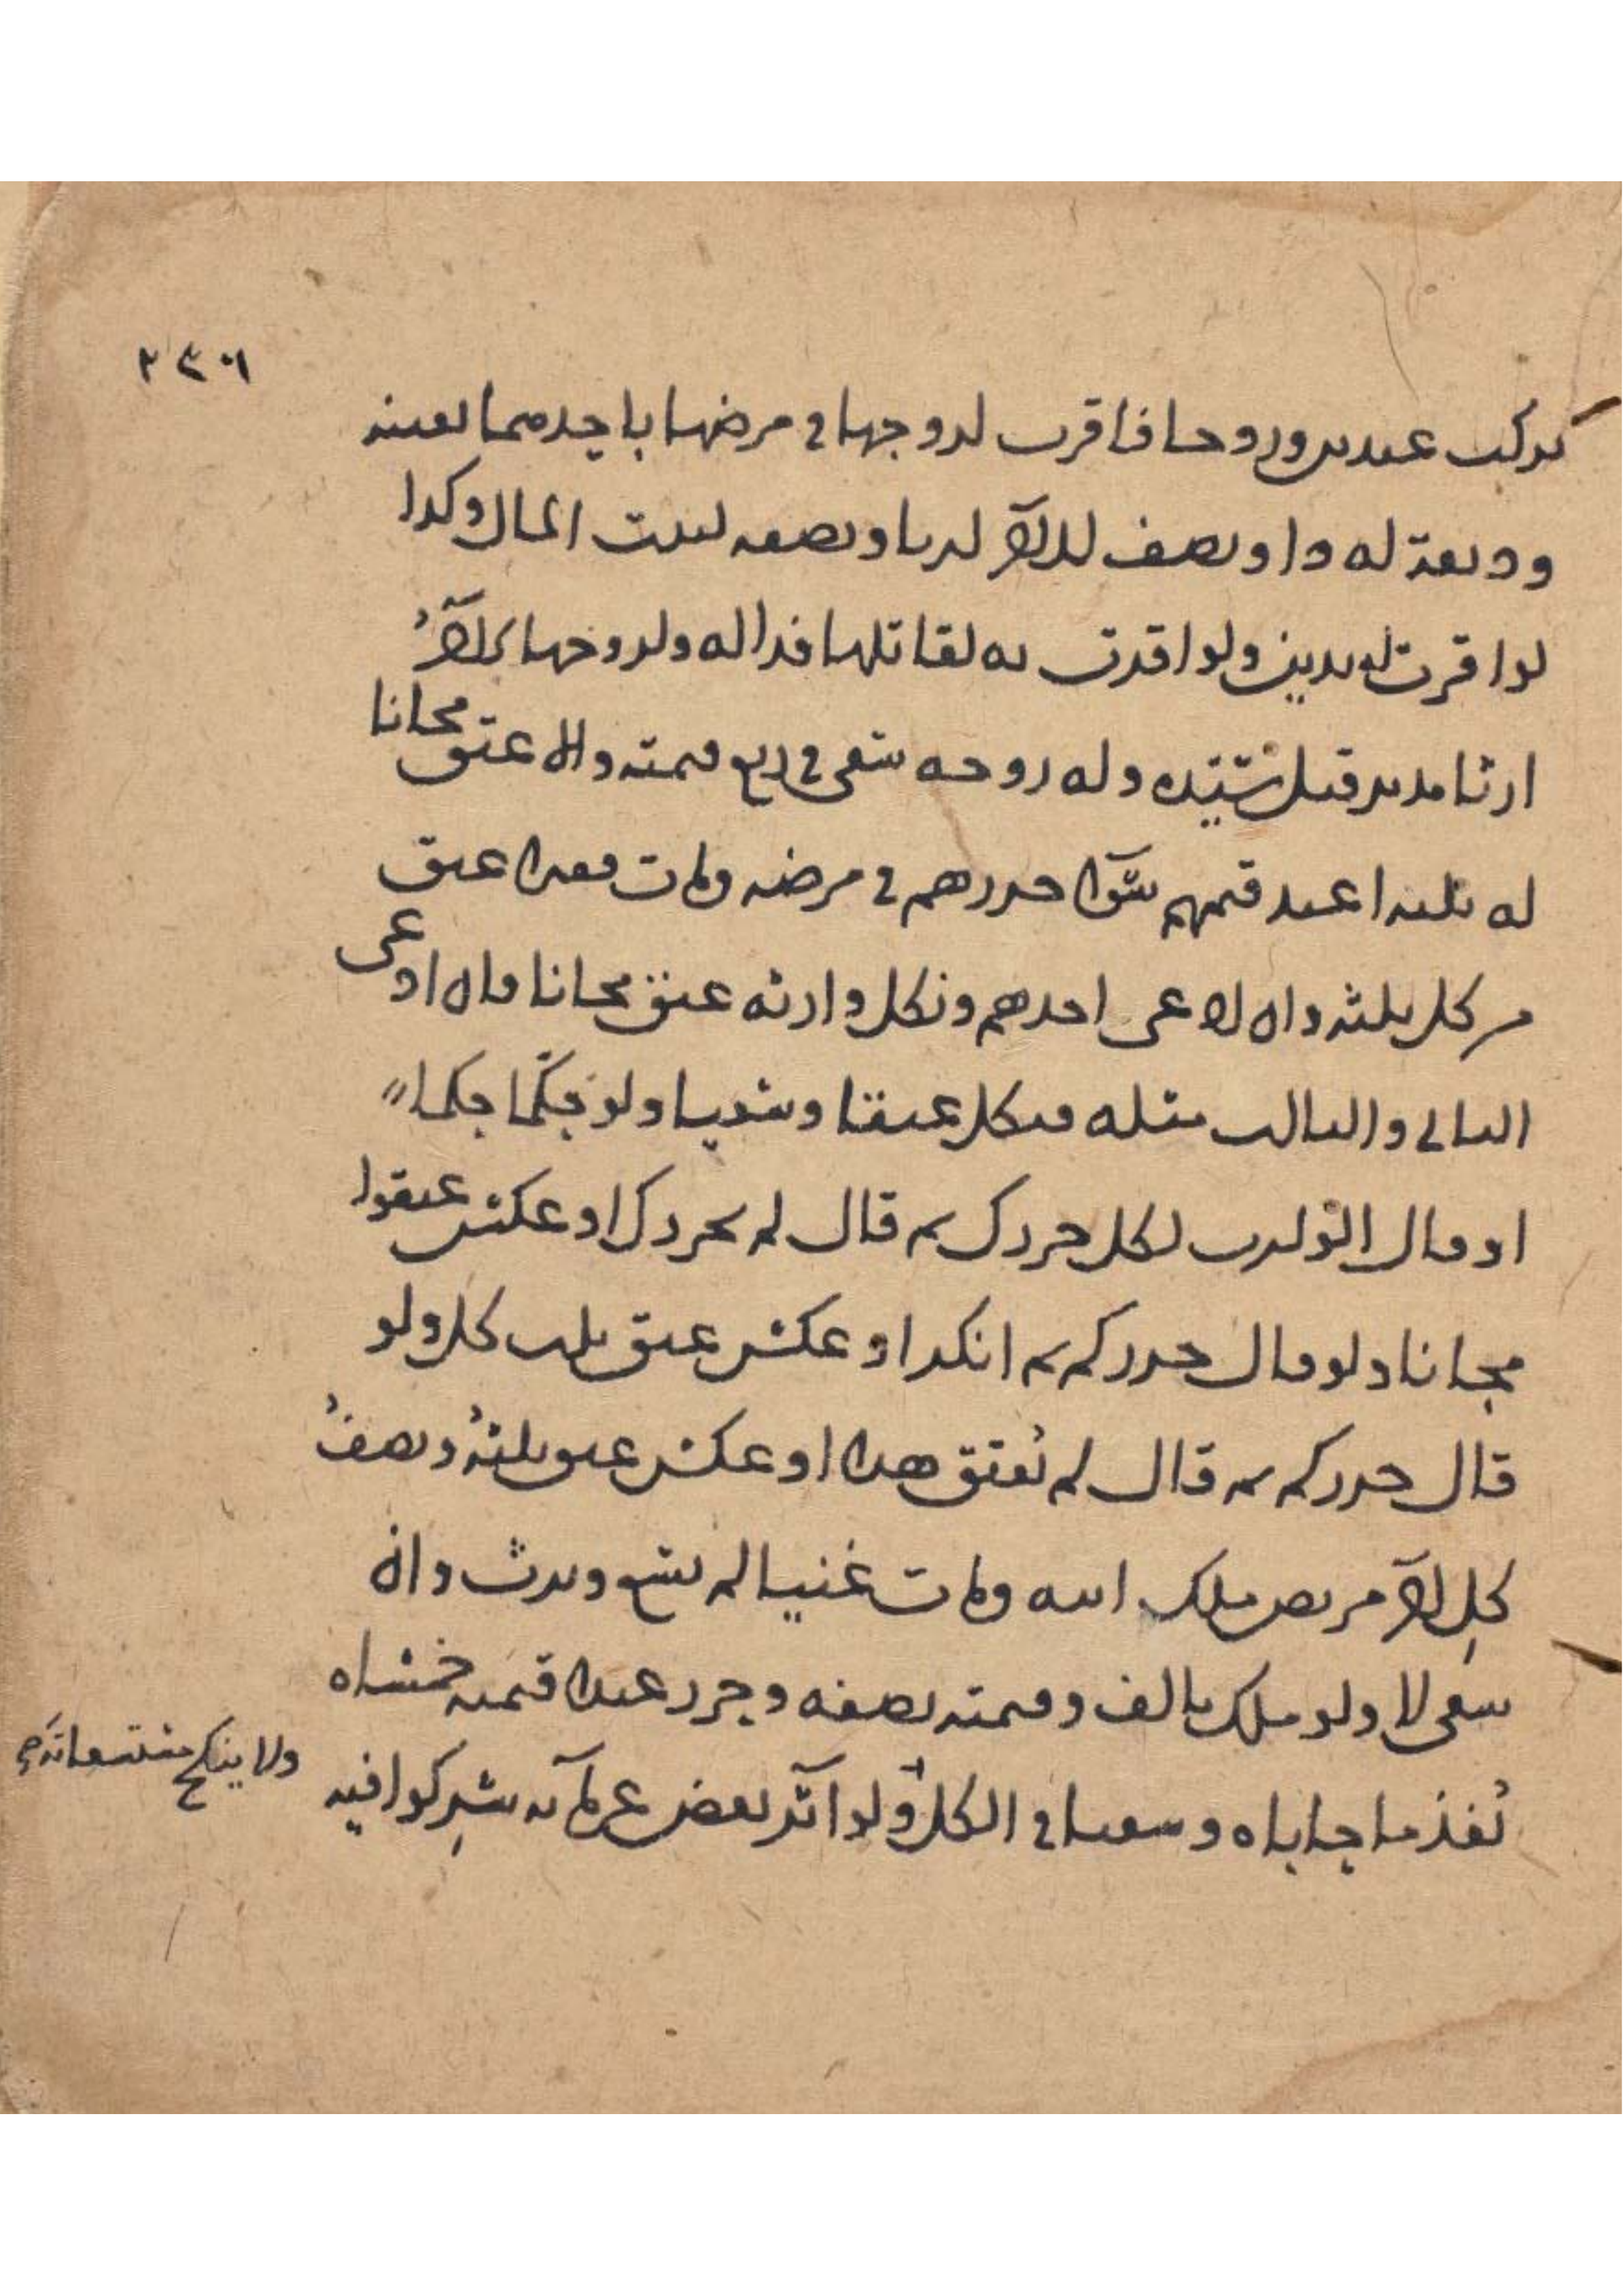 ٢٣٠١
تركت عبدين وزوجا فاقرت لزوجها في مرضها باحدهما بعينه
وديعة له داو نصف للآخر ارثا ونصفه لبيت المال وكذا
لو اقرت له بدين ولو اقرت به لقاتلها فذا له ولزوجها الآخر
ارثا مدبر قتل سيده وله زوجة سعى في ربع قيمته والا عتق مجانا
له ثلثة اعبد قيمهم سواء حررهم في مرضه ومات فقيرا عتق
من كل ثلثه وان ادعى احدهم ونكل وارثه عتق مجانا وان ادعى
الثاني والثالث مثله فنكل عتقا وسعيا ولو حكما حكما
او قال الوارث لكل حررك ثم قال لم يحررك او عكس عتقوا
مجانا ولو قال حرركم ثم انكر او عكس عتق ثلث كل ولو
قال حرركم ثم قال لم يعتق هذا او عكس عتق ثلثه ونصف
كل آخر مريض ملك ابنه ومات غنيا لم يسع ويرث وان
سعى لا ولو ملك بالف وقيمته نصفه وحرر عبدا قيمته خمسمائة
نفذ ما حاباه وسعيا في الكل ولو آثر بعض غرمائه شركوا فيه
ولا ينكح